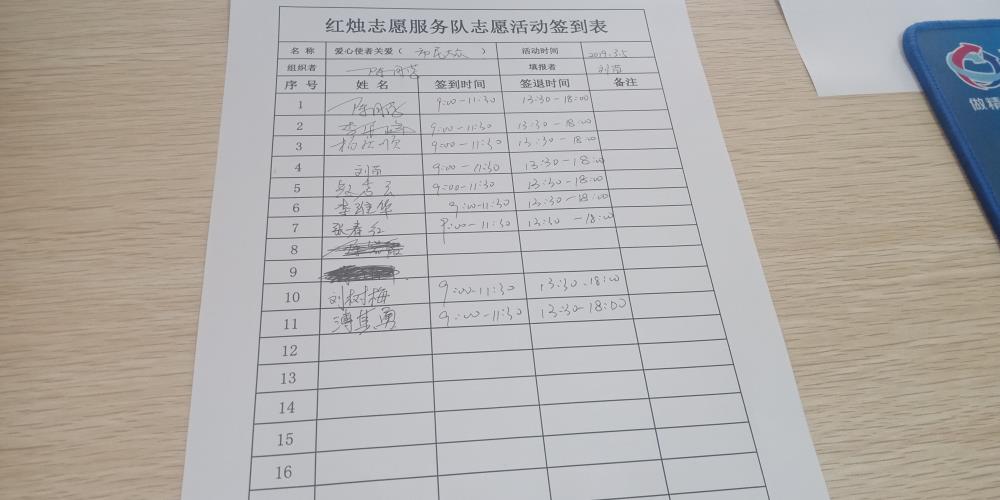 红烛志愿服务队志愿活动签到表
名 称 爱心使者关爱（ 市民大众 ） 活动时间 2019.3.5
组织者 填报者 刘蕾
序 号 姓 名 签到时间 签退时间 备注
1 9:00-11:30 13:30-18:00
2 9:00-11:30 13:30-18:00
3 9:00-11:30 13:30-18:00
4 9:00-11:30 13:30-18:00
5 9:00-11:30 13:30-18:00
6 李维华 9:00-11:30 13:30-18:00
7 张春红 9:00-11:30 13:30-18:00
8
9
10 刘树梅 9:00-11:30 13:30-18:00
11 9:00-11:30 13:30-18:00
12
13
14
15
16
做精